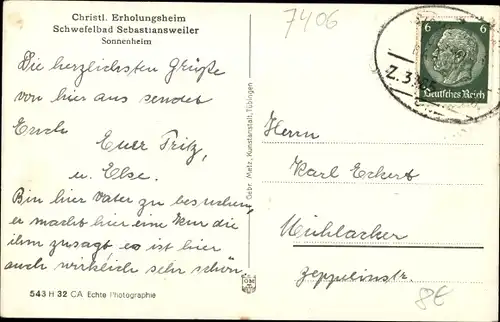 Christl. Erholungsheim
Schwefelbad Sebastiansweiler
Sonnenheim
7406
6 6
Deutsches Reich
Z.3
Die herzlichsten Grüße
von hier aus sendet
Euch Euer Fritz,
u. Else.
Bin hier Vater zu besuchen,
er macht hier eine Kur die
ihm zusagt, es ist hier
auch wirklich sehr schön.
543 H 32 CA Echte Photographie
Gebr. Metz, Kunstanstalt, Tübingen
Herrn
Karl Eckert
Mühlacker
Zeppelinstr.
8€